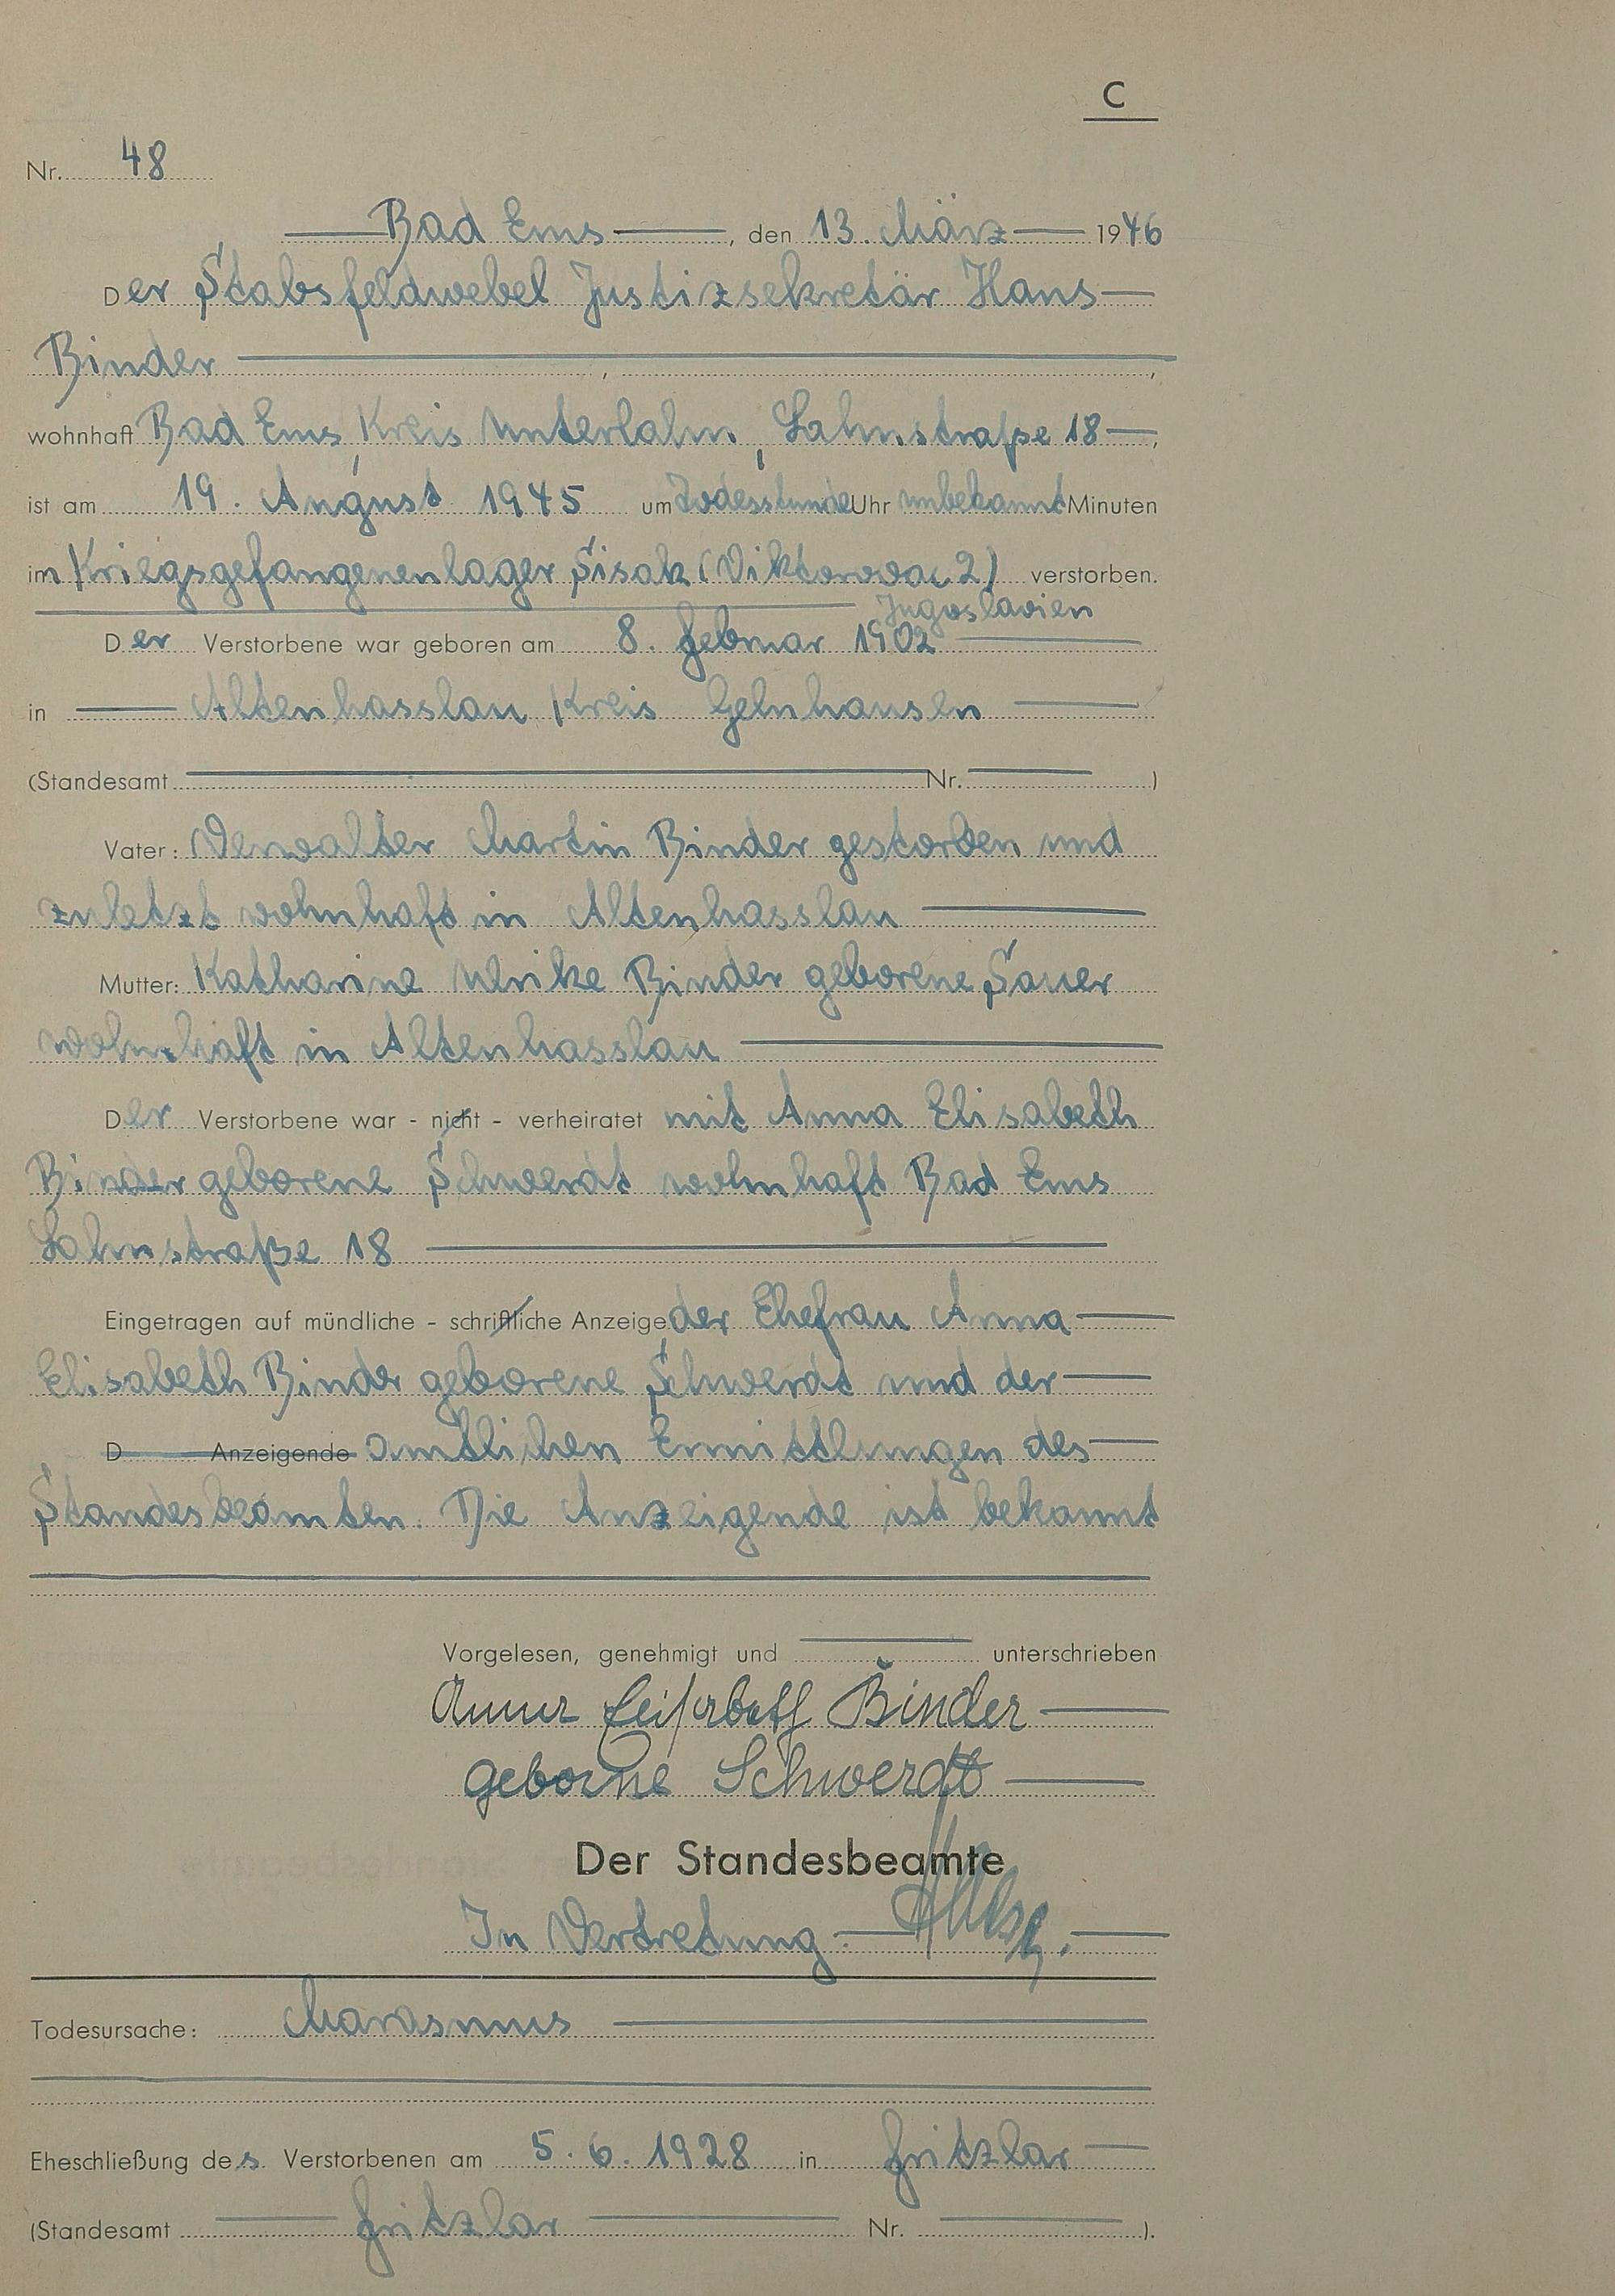 C
Nr. 48
Bad Ems, den 13. März 1946
Der Stabsfeldwebel Justizsekretär Hans
Binder
wohnhaft Bad Ems, Kreis Unterlahn, Lahnstraße 18,
ist am 19. August 1945 um Todesstunde Uhr unbekannt Minuten
im Kriegsgefangenenlager Sisak (Viktorovac 2) verstorben.
Jugoslavien
Der Verstorbene war geboren am 8. Februar 1902
in Altenhasslau Kreis Gelnhausen
(Standesamt Nr. )
Vater: Verwalter Martin Binder gestorben und
zuletzt wohnhaft in Altenhasslau
Mutter: Katharine Ulrike Binder geborene Sauer
wohnhaft in Altenhasslau
Der Verstorbene war - nicht - verheiratet mit Anna Elisabeth
Binder geborene Schwerdt wohnhaft Bad Ems
Lahnstraße 18
Eingetragen auf mündliche - schriftliche Anzeige der Ehefrau Anna
Elisabeth Binder geborene Schwerdt und der
D Anzeigende amtlichen Ermittlungen des
Standesbeamten. Die Anzeigende ist bekannt
Vorgelesen, genehmigt und unterschrieben
Anna Elisabeth Binder
geborne Schwerdt
Der Standesbeamte
In Vertretung.
Todesursache: Marasmus
Eheschließung des Verstorbenen am 5.6.1928 in Fritzlar
(Standesamt Fritzlar Nr. ).